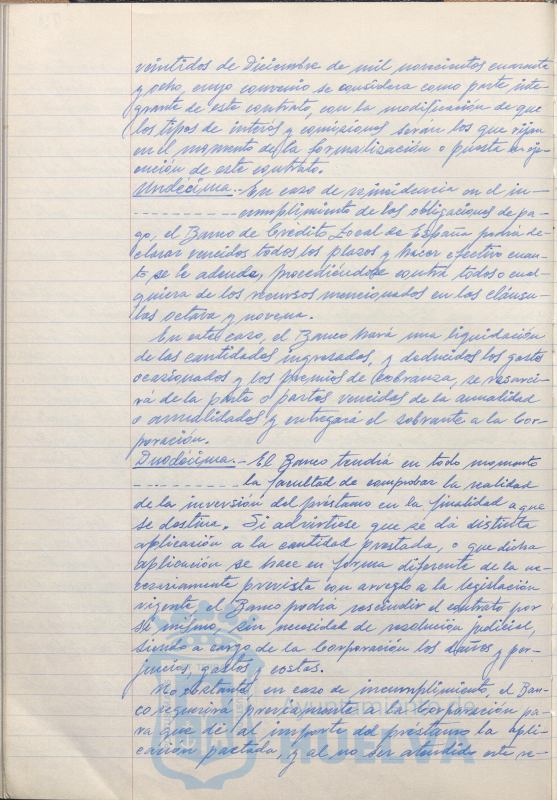 veintidos de Diciembre de mil novecientos cuarenta
y ocho, cuyo convenio se considera como parte inte-
grante de este contrato, con la modificación de que
los tipos de interés y comisiones serán los que rijan
en el momento de la formalización o puesta en eje-
cución de este contrato.
Undécima.- En caso de reincidencia en el in-
cumplimiento de las obligaciones de pa-
go, el Banco de Crédito Local de España podrá de-
clarar vencidos todos los plazos y hacer efectivo cuan-
to se le adeude, procediéndose contra todos o cual-
quiera de los recursos mencionados en las cláusu-
las octava y novena.
En este caso, el Banco hará una liquidación
de las cantidades ingresadas, y deducidos los gastos
ocasionados y los premios de cobranza, se resarci-
rá de la parte o partes vencidas de la anualidad
o anualidades y entregará el sobrante a la Cor-
poración.
Duodécima.- El Banco tendrá en todo momento
la facultad de comprobar la realidad
de la inversión del préstamo en la finalidad a que
se destina. Si advirtiese que se dá distinta
aplicación a la cantidad prestada, o que dicha
aplicación se hace en forma diferente de la ne-
cesariamente prevista con arreglo a la legislación
vigente, el Banco podrá rescindir el contrato por
si mismo, sin necesidad de resolución judicial,
siendo a cargo de la Corporación los daños y per-
juicios, gastos y costas.
No obstante, en caso de incumplimiento, el Ban-
co requerirá previamente a la Corporación pa-
ra que dé al importe del préstamo la apli-
cación pactada, y al no ser atendido este re-
HUELVA